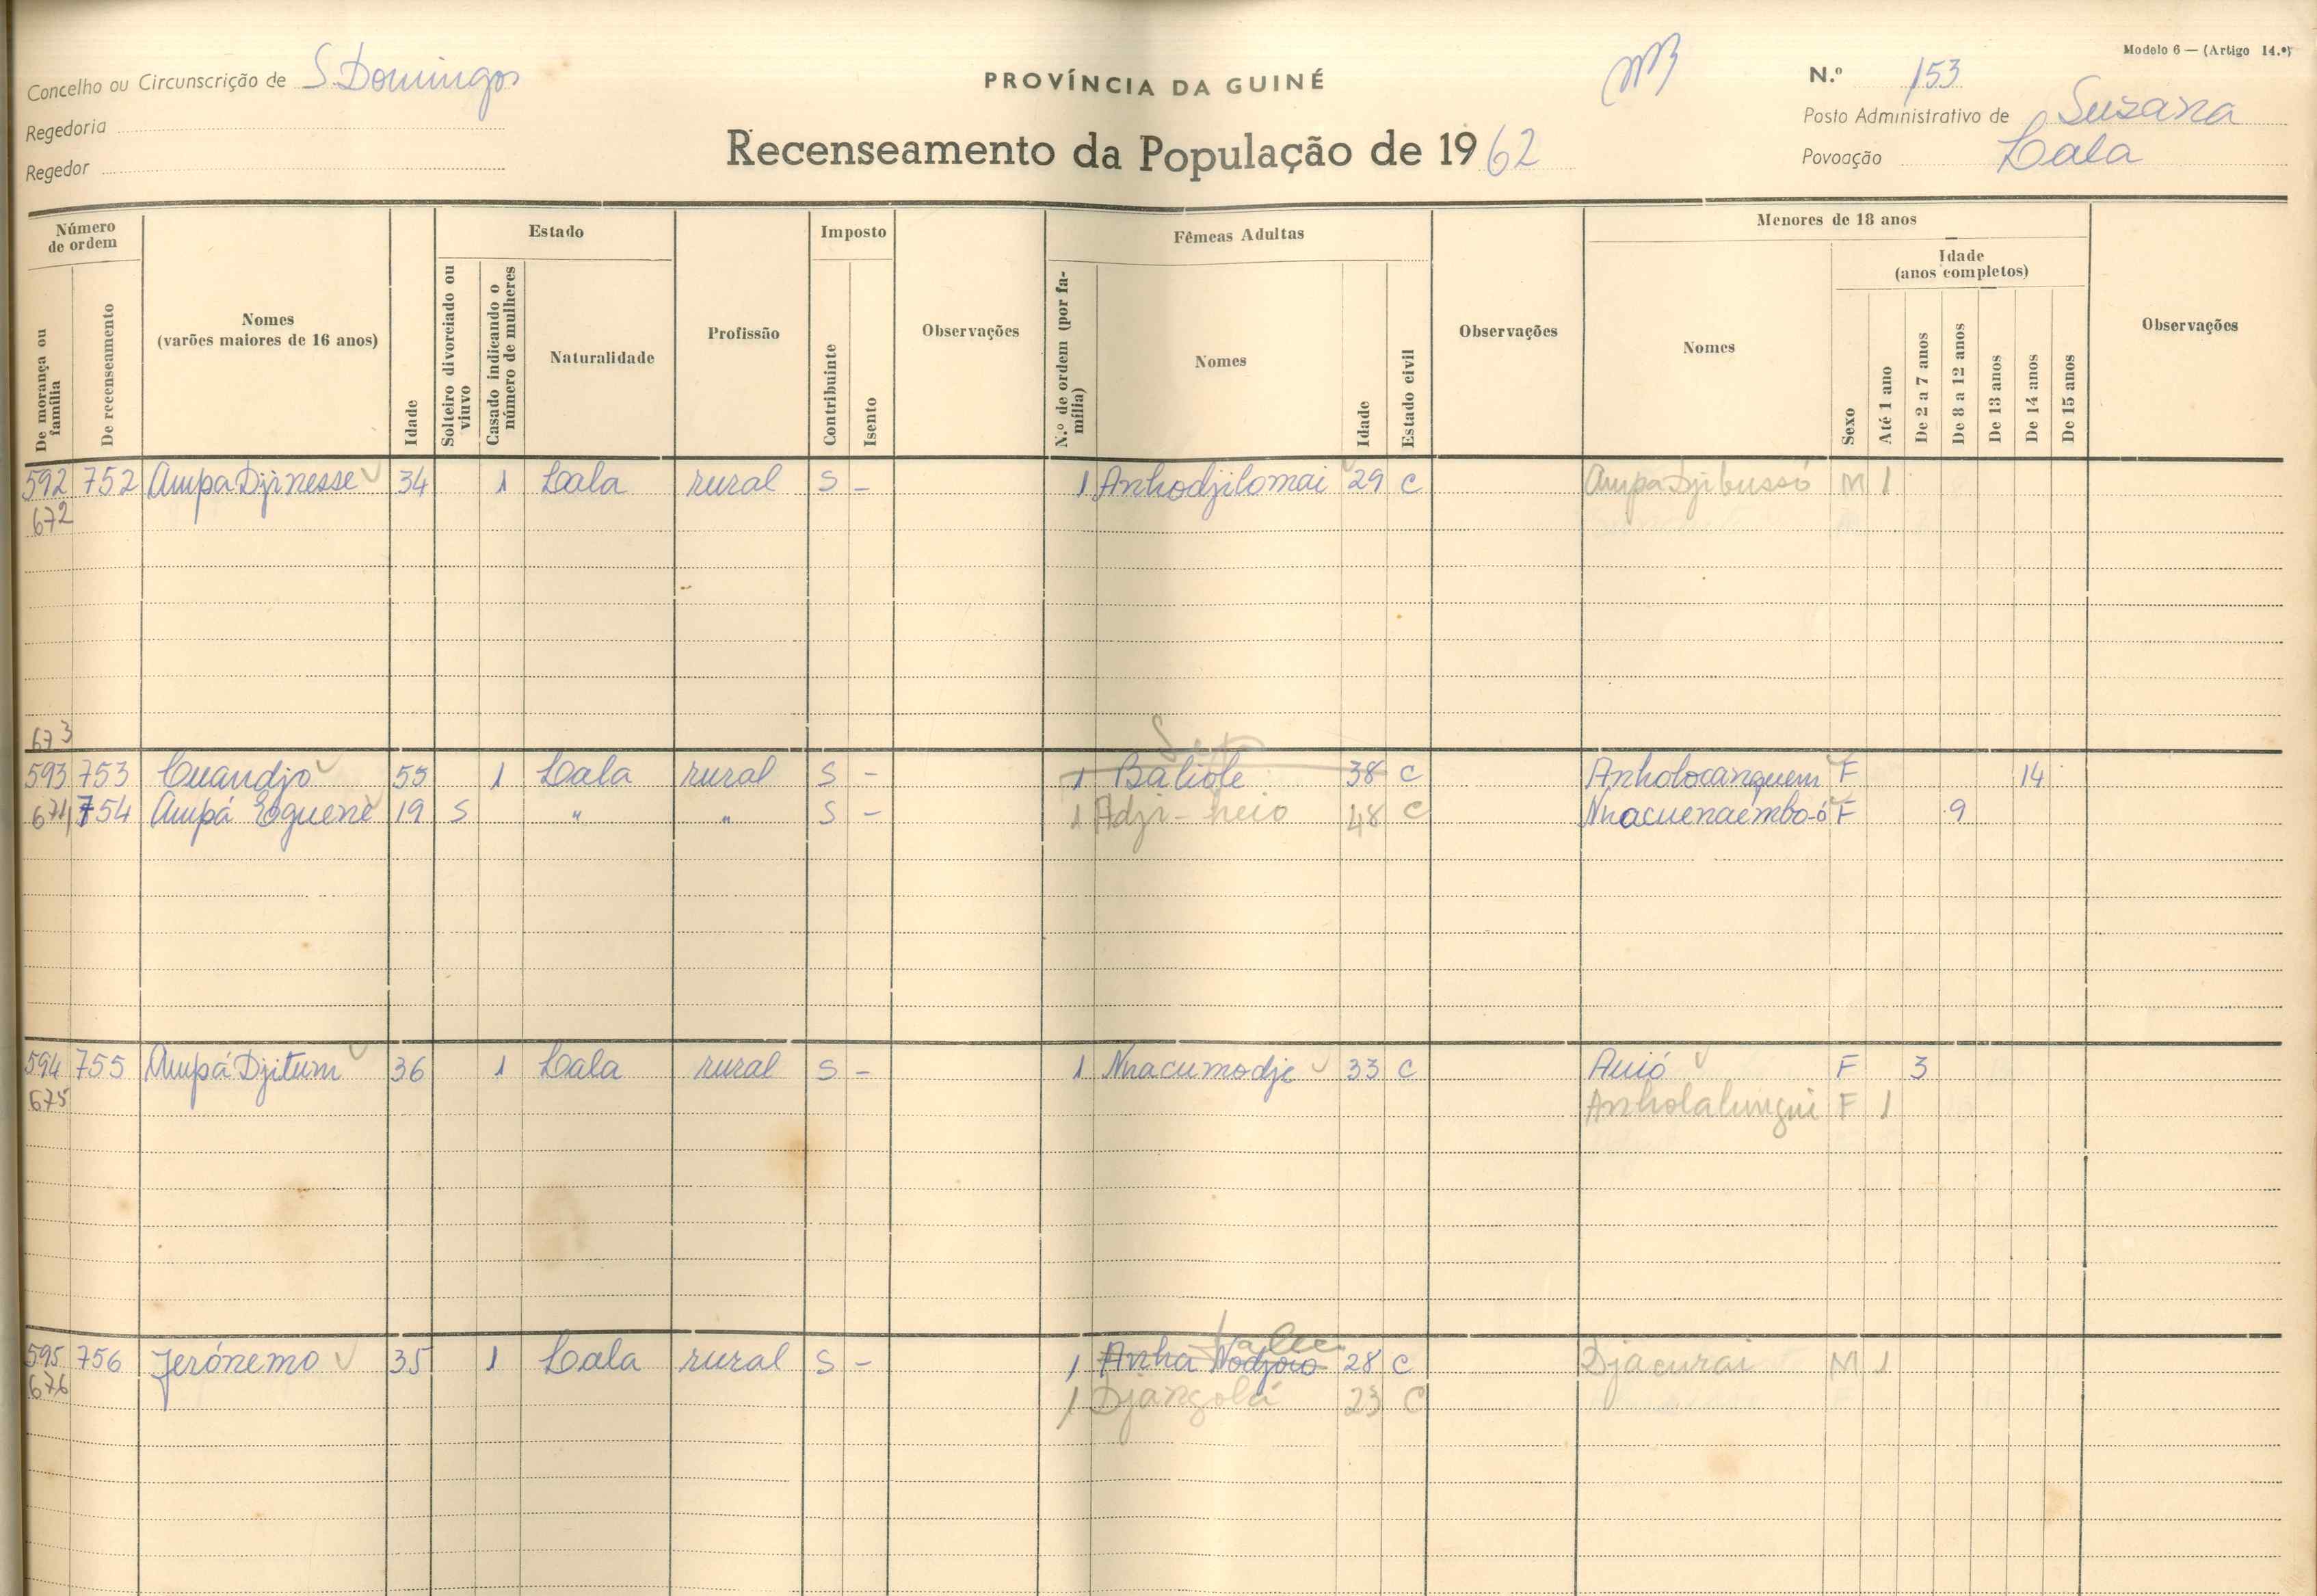 Modelo 6 — (Artigo 14.º)
Concelho ou Circunscrição de S. Domingos
PROVÍNCIA DA GUINÉ
N.º 153
Regedoria
Posto Administrativo de Suzana
Regedor
Recenseamento da População de 1962
Povoação Lala
Número de ordem
Estado
Imposto
Fêmeas Adultas
Menores de 18 anos
De morança ou família
De recenseamento
Nomes (varões maiores de 16 anos)
Idade
Solteiro divorciado ou viuvo
Casado indicando o número de mulheres
Naturalidade
Profissão
Contribuinte
Isento
Observações
N.º de ordem (por família)
Nomes
Idade
Estado civil
Observações
Nomes
Sexo
Idade (anos completos)
Até 1 ano
De 2 a 7 anos
De 8 a 12 anos
De 13 anos
De 14 anos
De 15 anos
Observações
592 752 Ampa Djinesse 34 1 Lala rural S - 1 Anhodjilomai 29 C Ampa Djibussó M 1
672
673
593 753 Cuandjo 55 1 Lala rural S - 1 Baliole 38 C Anholocanquem F 14
674 754 Ampá Eguene 19 S " " S - 1 Adji-heio 48 C Nhacuenaembo-ó F 9
594 755 Ampá Djitum 36 1 Lala rural S - 1 Nhacumodje 33 C Auió F 3
675 Anholalungui F 1
595 756 Jerónemo 35 1 Lala rural S - 1 Anha Nodjoio 28 C Djacurai M 1
676 1 Djangolá 23 C